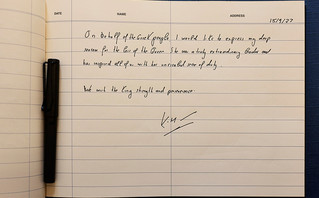 DATE NAME ADDRESS
15/9/22
On behalf of the Greek people, I would like to express my deep
sorrow for the loss of the Queen. She was a truly extraordinary leader and
has inspired all of us with her unrivalled sense of duty.
the King strength and perseverance